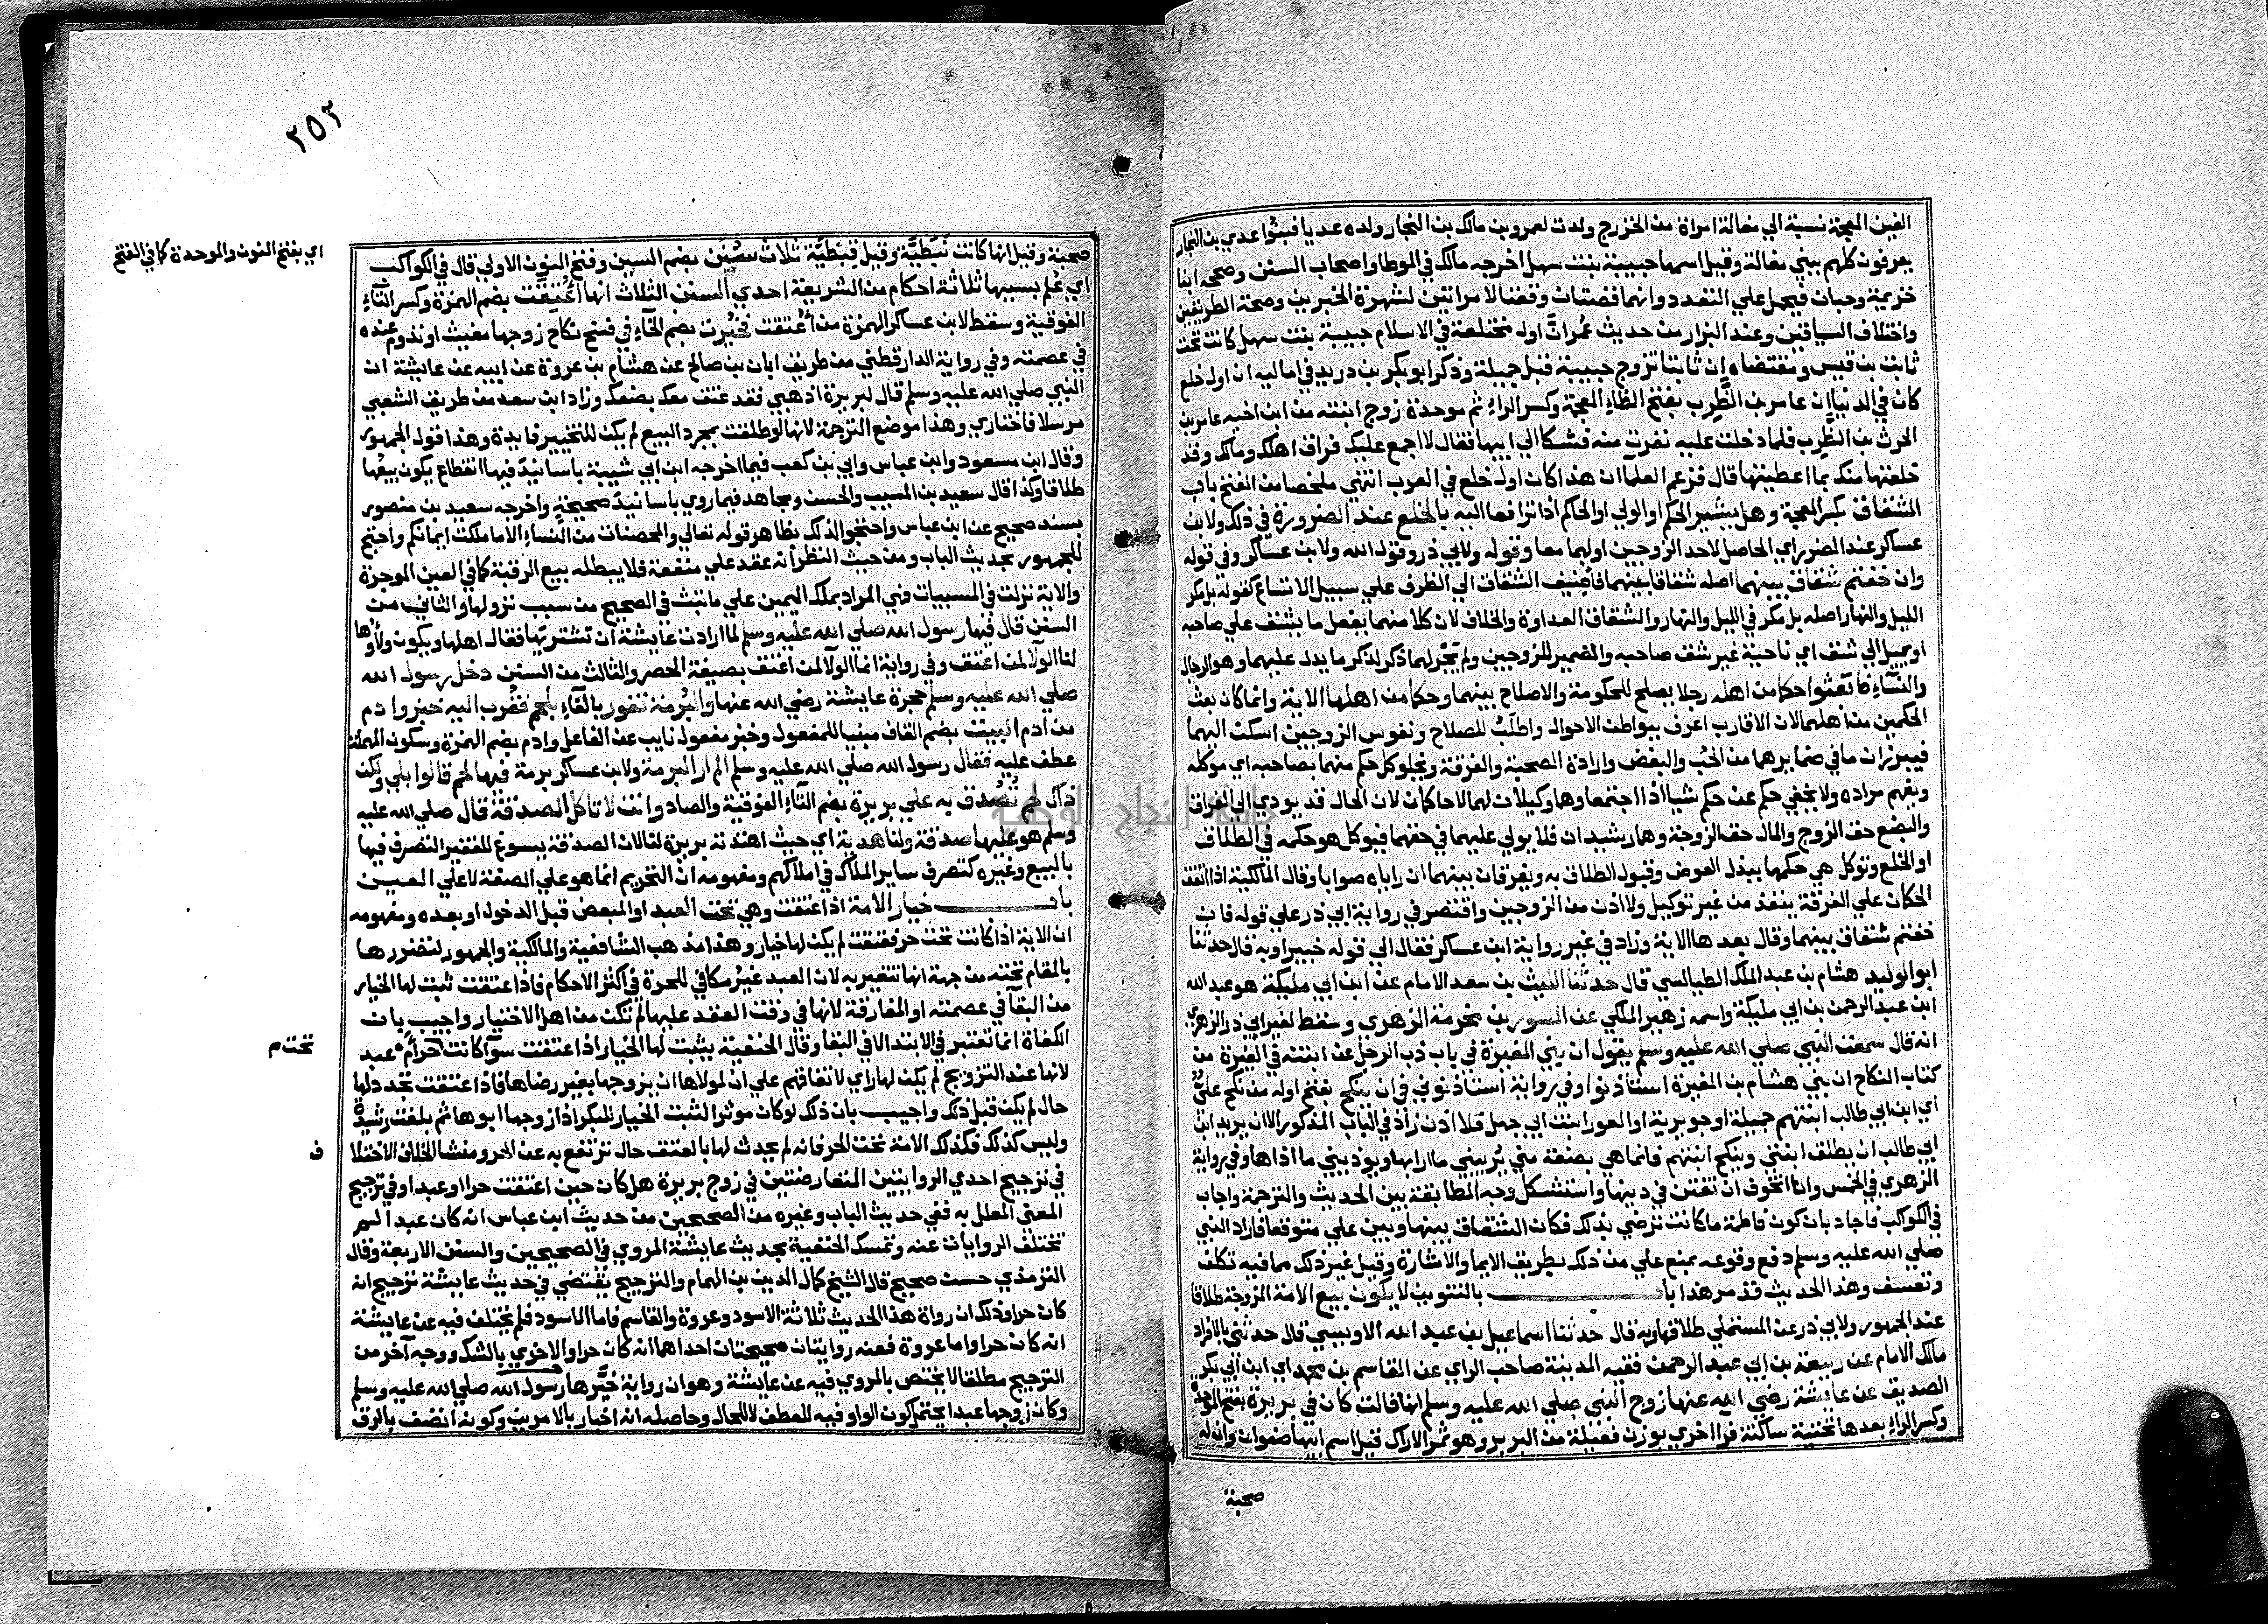 الغين المعجمة نسبة الي مغالة امراة من الخزرج ولدت لعمرو بن مالك بن النجار ولده عديا فبنوا عدي بن النجار
يعرفون كلهم ببني مغالة وقيل اسمها حبيبة بنت سهل اخرجه مالك في الموطا واصحاب السنن وصححه ابنا
خزيمة وحبان فيحمل علي التعدد وانهما قصتان وقعتا لامراتين لشهرة الخبرين وصحة الطريقين
واختلاف السياقين وعند البزار من حديث عمر ان اول مختلعة في الاسلام حبيبة بنت سهل كانت تحت
ثابت بن قيس ومقتضاه ان ثابتا تزوج حبيبة قبل جميلة وذكر ابو بكر بن دريد في اماليه ان اول خلع
كان في الدنيا ان عامر بن الظرب بفتح الظاء المعجمة وكسر الراء ثم موحدة زوج ابنته من ابن اخيه عامر بن
الحرث بن الظرب فلما دخلت عليه نفرت منه فشكا الي ابيها فقال لا اجمع عليك فراق اهلك ومالك وقد
خلعتها منك بما اعطيتها قال فزعم العلما ان هذا كان اول خلع في العرب انتهي ملخصا من الفتح باب
الشقاق بكسر المعجمة وهل يشير الحكم او الولي او الحاكم اذا ترافعا اليه بالخلع عند الضرورة في ذلك ولابن
عساكر عند الضرر اي الحاصل لاحد الزوجين او لهما معا وقوله ولابي ذر وقول الله ولابن عساكر وفي قوله
وان خفتم شقاق بينهما اصله شقاقا بينهما فاضيف الشقاق الي الظرف علي سبيل الاتساع كقوله بل مكر
الليل والنهار اصله بل مكر في الليل والنهار والشقاق العداوة والخلاف لان كلا منهما يفعل ما يشق علي صاحبه
او يميل الي شق اي ناحية غير شق صاحبه والضمير للزوجين ولم يجر لهما ذكر لذكر ما يدل عليهما وهو الرجال
والنساء فابعثوا حكما من اهله رجلا يصلح للحكومة والاصلاح بينهما وحكما من اهلها الاية وانما كان بعث
الحكمين من اهلهما لان الاقارب اعرف ببواطن الاحوال واطلب للصلاح ونفوس الزوجين اسكن اليهما
فيبرزان ما في ضمايرهما من الحب والبغض وارادة الصحبة والفرقة ويخلو كل حكم منهما بصاحبه اي موكله
ويفهم مراده ولا يخفي حكم عن حكم شيا اذا اجتمعا وهما وكيلان لهما لا حاكمان لان الحال قد يودي الي الفراق
والبضع حق الزوج والمال حق الزوجة وهما رشيدان فلا يولي عليهما في حقهما فيوكل هو حكمه في الطلاق
او الخلع وتوكل هي حكمها ببذل العوض وقبول الطلاق به ويفرقان بينهما ان راياه صوابا وقال المالكية اذا اتفق
الحكمان علي الفرقة ينفذ من غير توكيل ولا اذن من الزوجين واقتصر في رواية ابي ذر علي قوله فان
خفتم شقاق بينهما وقال بعدها الاية وزاد في غير رواية ابن عساكر فقال الي قوله خبيرا وبه قال حدثنا
ابو الوليد هشام بن عبد الملك الطيالسي قال حدثنا الليث بن سعد الامام عن ابن ابي مليكة هو عبد الله
ابن عبد الرحمن بن ابي مليكة واسمه زهير المكي عن المسور بن مخرمة الزهري وسقط لغير ابي ذر الزهري
انه قال سمعت النبي صلي الله عليه وسلم يقول ان بني المغيرة في باب ذب الرجل عن ابنته في الغيرة من
كتاب النكاح ان بني هشام بن المغيرة استاذنوا وفي رواية استاذنوني في ان ينكح بفتح اوله من نكح علي
اي ابن ابي طالب ابنتهم جميلة او جويرية او العورا بنت ابي جهل فلا اذن زاد في الباب المذكور الا ان يريد ابن
ابي طالب ان يطلق ابنتي وينكح ابنتهم فانما هي بضعة مني يريبني ما ارابها ويوذيني ما اذاها وفي رواية
الزهري في الخمس وانا اتخوف ان تفتن في دينها واستشكل وجه المطابقة بين الحديث والترجمة واجاب
في الكواكب فاجاد بان كون فاطمة ما كانت ترضي بذلك فكان الشقاق بينها وبين علي متوقعا فاراد النبي
صلي الله عليه وسلم دفع وقوعه بمنع علي من ذلك بطريق الايما والاشارة وقيل غير ذلك مما فيه تكلف
وتعسف وهذا الحديث قد مر هذا باب بالتنوين لا يكون بيع الامة المزوجة طلاقا
عند الجمهور ولابي ذر عن المستملي طلاقها وبه قال حدثنا اسماعيل بن عبد الله الاويسي قال حدثني بالافراد
مالك الامام عن ربيعة بن ابي عبد الرحمن فقيه المدينة صاحب الراي عن القاسم بن محمد اي ابن ابي بكر
الصديق عن عايشة رضي الله عنها زوج النبي صلي الله عليه وسلم انها قالت كان في بريرة بفتح الموحدة
وكسر الراء بعدها تحتية ساكنة فرا اخري بوزن فعيلة من البربر وهو ثمر الاراك قيل اسم ابيها صفوان وان له
صحبة
٢٥٢
اي بفتح النون والموحدة كما في الفتح
صحبة وقيل انها كانت نبطية وقيل قبطية ثلاث سنن بضم السين وفتح النون الاولي قال في الكواكب
اي علم بسببها ثلاثة احكام من الشريعة احدي السنن الثلاث انها اعتقت بضم الهمزة وكسر التاء
الفوقية وسقط لابن عساكر الهمزة من اعتقت فخيرت بضم الخاء في فسخ نكاح زوجها مغيث او تدوم عنده
في عصمته وفي رواية الدارقطني من طريق ابان بن صالح عن هشام بن عروة عن ابيه عن عايشة ان
النبي صلي الله عليه وسلم قال لبريرة اذهبي فقد عتق معك بضعك وزاد ابن سعد من طريق الشعبي
مرسلا فاختاري وهذا موضع الترجمة لانها لو طلقت بمجرد البيع لم يكن للتخيير فايدة وهذا قول الجمهور
وقال ابن مسعود وابن عباس وابي بن كعب فيما اخرجه ابن ابي شيبة باسانيد فيها انقطاع يكون بيعها
طلاقا وكذا قال سعيد بن المسيب والحسن ومجاهد فيما روي باسانيد صحيحة واخرجه سعيد بن منصور
بسند صحيح عن ابن عباس واحتجوا لذلك بظاهر قوله تعالي والمحصنات من النساء الا ما ملكت ايمانكم واحتج
للجمهور بحديث الباب ومن حيث النظر انه عقد علي منفعة فلا يبطله بيع الرقبة كما في العين الموجرة
والاية نزلت في المسبيات فهي المراد بملك اليمين علي ما ثبت في الصحيح من سبب نزولها والثاني من
السنن قال فيها رسول الله صلي الله عليه وسلم لما ارادت عايشة ان تشتريها فقال اهلها ويكون ولاؤها
لنا الولا لمن اعتق وفي رواية انما الولا لمن اعتق بصيغة الحصر والثالث من السنن دخل رسول الله
صلي الله عليه وسلم حجرة عايشة رضي الله عنها والبرمة تفور بالفاء بلحم فقرب اليه خبز وادم
من ادم البيت بضم القاف مبنيا للمفعول وخبز مفعول نايب عن الفاعل وادم بضم الهمزة وسكون المهملة
عطف عليه فقال رسول الله صلي الله عليه وسلم الم ار البرمة ولابن عساكر برمة فيها لحم قالوا بلي ولكن
ذاك لحم تصدق به علي بريرة بضم التاء الفوقية والصاد وانت لا تاكل الصدقة قال صلي الله عليه
وسلم هو عليها صدقة ولنا هدية اي حيث اهدته بريرة لنا لان الصدقة يسوغ للفقير التصرف فيها
بالبيع وغيره كتصرف ساير الملاك في املاكهم ومفهومه ان التحريم انما هو علي الصفة لا علي العين
باب خيار الامة اذا عتقت وهي تحت العبد او المبعض قبل الدخول او بعده ومفهومه
ان الامة اذا كانت تحت حر فعتقت لم يكن لها خيار وهذا مذهب الشافعية والمالكية والجمهور لتضررها
بالمقام تحته من جهة انها تتعير به لان العبد غير مكافي للحرة في اكثر الاحكام فاذا عتقت ثبت لها الخيار
من البقا في عصمته او المفارقة لانها في وقت العقد عليها لم تكن من اهل الاختيار واجيب بان
الكفاة انما تعتبر في الابتدا لا في البقا وقال الحنفية يثبت لها الخيار اذا عتقت سوا كانت حر ام عبد
تحت م
لانها عند التزويج لم يكن لها راي لاتفاقهم علي ان لمولاها ان يزوجها بغير رضاها فاذا عتقت تجدد لها
حال لم يكن قبل ذلك واجيب بان ذلك لو كان موثرا لثبت الخيار للبكر اذا زوجها ابوها ثم بلغت رشيدة
وليس كذلك فكذلك الامة تحت الحر فانه لم يحدث لها بالعتق حال ترتفع به عن الحر ومنشا الخلاف الاختلا
ف
في ترجيح احدي الروايتين المتعارضتين في زوج بريرة هل كان حين اعتقت حرا او عبدا وفي ترجيح
المعني المعلل به ففي حديث الباب وغيره من الصحيحين من حديث ابن عباس انه كان عبدا لم
تختلف الروايات عنه وتمسك الحنفية بحديث عايشة المروي في الصحيحين والسنن الاربعة وقال
الترمذي حسن صحيح قال الشيخ كمال الدين بن الهمام والترجيح يقتضي في حديث عايشة ترجيح انه
كان حرا وذلك ان رواة هذا الحديث ثلاثة الاسود وعروة والقاسم فاما الاسود فلم يختلف فيه عن عايشة
انه كان حرا واما عروة فعنه روايتان صحيحتان احداهما انه كان حرا والاخري بالشك ووجه آخر من
الترجيح مطلقا لا يختص بالمروي فيه عن عايشة وهو ان رواية خيرها رسول الله صلي الله عليه وسلم
وكان زوجها عبدا يحتمل كون الواو فيه للعطف لا للحال وحاصله انه اخبار بالامرين وكونه اتصف بالرق